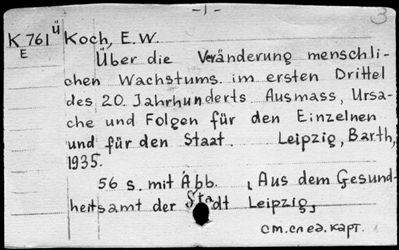 -1-
3
K 761 ü Koch, E.W.
E
Über die Veränderung menschli-
chen Wachstums im ersten Drittel
des 20. Jahrhunderts Ausmass, Ursa-
che und Folgen für den Einzelnen
und für den Staat. Leipzig, Barth,
1935.
56 s. mit Abb. (Aus dem Gesund-
heitsamt der Stadt Leipzig,
см. след. карт.